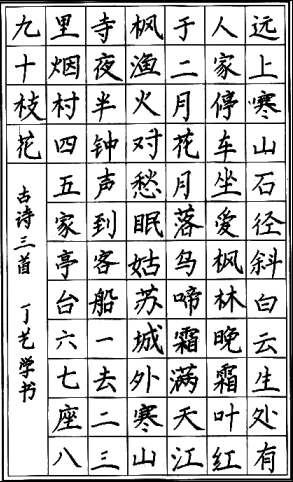 远上寒山石径斜白云生处有
人家停车坐爱枫林晚霜叶红
于二月花月落乌啼霜满天江
枫渔火对愁眠姑苏城外寒山
寺夜半钟声到客船一去二三
里烟村四五家亭台六七座八
九十枝花
古诗三首 丁艺学书